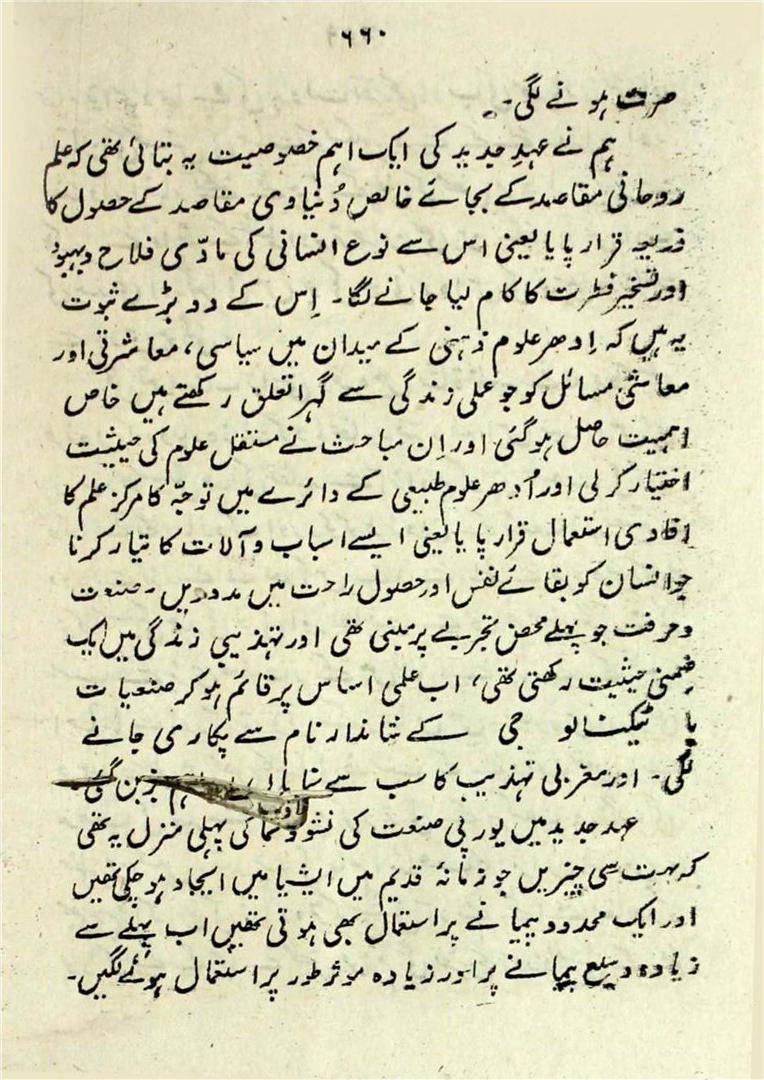 ۶۶۰
صرف ہونے لگی۔
ہم نے عہدِ جدید کی ایک اہم خصوصیت یہ بتائی تھی کہ علم
روحانی مقاصد کے بجائے خالص دُنیاوی مقاصد کے حصول کا
ذریعہ قرار پایا یعنی اس سے نوع انسانی کی مادّی فلاح وبہبود
اور تسخیر فطرت کا کام لیا جانے لگا۔ اِس کے دو بڑے ثبوت
یہ ہیں کہ اِدھر علوم ذہنی کے میدان میں سیاسی، معاشرتی اور
معاشی مسائل کو جو عملی زندگی سے گہرا تعلق رکھتے ہیں خاص
اہمیت حاصل ہوگئی اور اِن مباحث نے مستقل علوم کی حیثیت
اختیار کرلی اور اُدھر علوم طبیعی کے دائرے میں توجّہ کا مرکز علم کا
افادی استعمال قرار پایا یعنی ایسے اسباب وآلات کا تیار کرنا
جو انسان کو بقائے نفس اور حصول راحت میں مدد دیں۔ صنعت
وحرفت جو پہلے محض تجربے پر مبنی تھی اور تہذیبی زندگی میں ایک
ضمنی حیثیت رکھتی تھی، اب علمی اساس پر قائم ہوکر صنعیات
یا ٹیکنالوجی کے شاندار نام سے پکاری جانے
لگی۔ اور مغربی تہذیب کا سب سے بن گئی۔
عہد جدید میں یورپی صنعت کی نشوونما کی پہلی منزل یہ تھی
کہ بہت سی چیزیں جو زمانۂ قدیم میں ایشیا میں ایجاد ہوچکی تھیں
اور ایک محدود پیمانے پر استعمال بھی ہوتی تھیں اب پہلے سے
زیادہ وسیع پیمانے پر اور زیادہ موثر طور پر استعمال ہونے لگیں۔